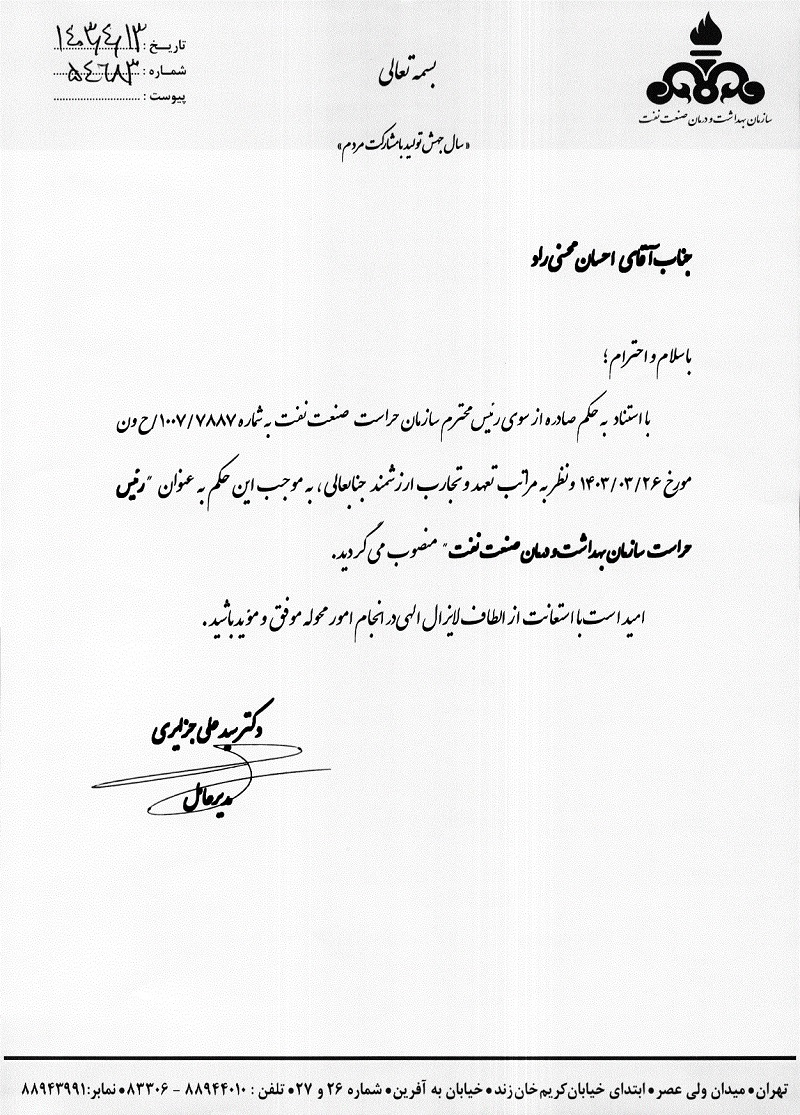 تاریخ : ۱۴۰۳٫۴٫۱۳
شماره : ۵۴۶۸۳
پیوست :
بسمه تعالی
سازمان بهداشت و درمان صنعت نفت
«سال جهش تولید با مشارکت مردم»
جناب آقای احسان محسنی راد
با سلام و احترام ؛
با استناد به حکم صادره از سوی رئیس محترم سازمان حراست صنعت نفت به شماره ۱۰۰۷/۷۸۸۷/ح ون
مورخ ۱۴۰۳/۰۳/۲۶ و نظر به مراتب تعهد و تجارب ارزشمند جنابعالی ، به موجب این حکم به عنوان "رئیس
حراست سازمان بهداشت و درمان صنعت نفت" منصوب می گردید.
امید است با استعانت از الطاف لایزال الهی در انجام امور محوله موفق و مؤید باشید .
دکتر سید علی جزایری
مدیرعامل
تهران • میدان ولی عصر • ابتدای خیابان کریم خان زند • خیابان به آفرین • شماره ۲۶ و ۲۷ • تلفن : ۸۸۹۴۴۰۱۰ - ۸۳۳۰۶ • نمابر: ۸۸۹۴۳۹۹۱